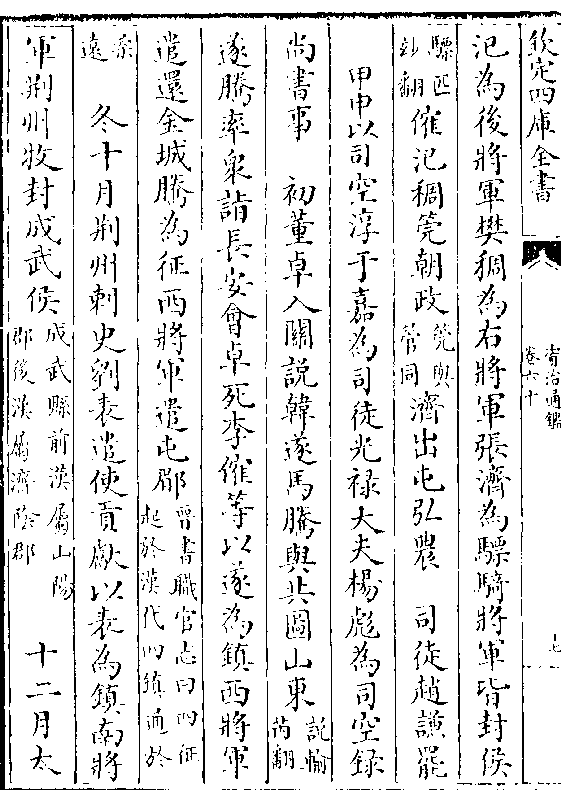 欽定四庫全書
資治通鑑
卷六十
七
汜為後將軍樊稠為右將軍張濟為驃騎將軍皆封侯
驃匹妙翻傕汜稠筦朝政筦與管同濟出屯弘農　司徒趙謙罷
甲申以司空淳于嘉為司徒光祿大夫楊彪為司空錄
尚書事　初董卓入關說韓遂馬騰與共圖山東說輸芮翻
遂騰率衆詣長安會卓死李傕等以遂為鎮西將軍
遣還金城騰為征西將軍遣屯郿晉書職官志曰四征起於漢代四鎮通於
柔遠　冬十月荆州刺史劉表遣使貢獻以表為鎮南將
軍荆州牧封成武侯成武縣前漢屬山陽郡後漢屬濟陰郡　十二月太